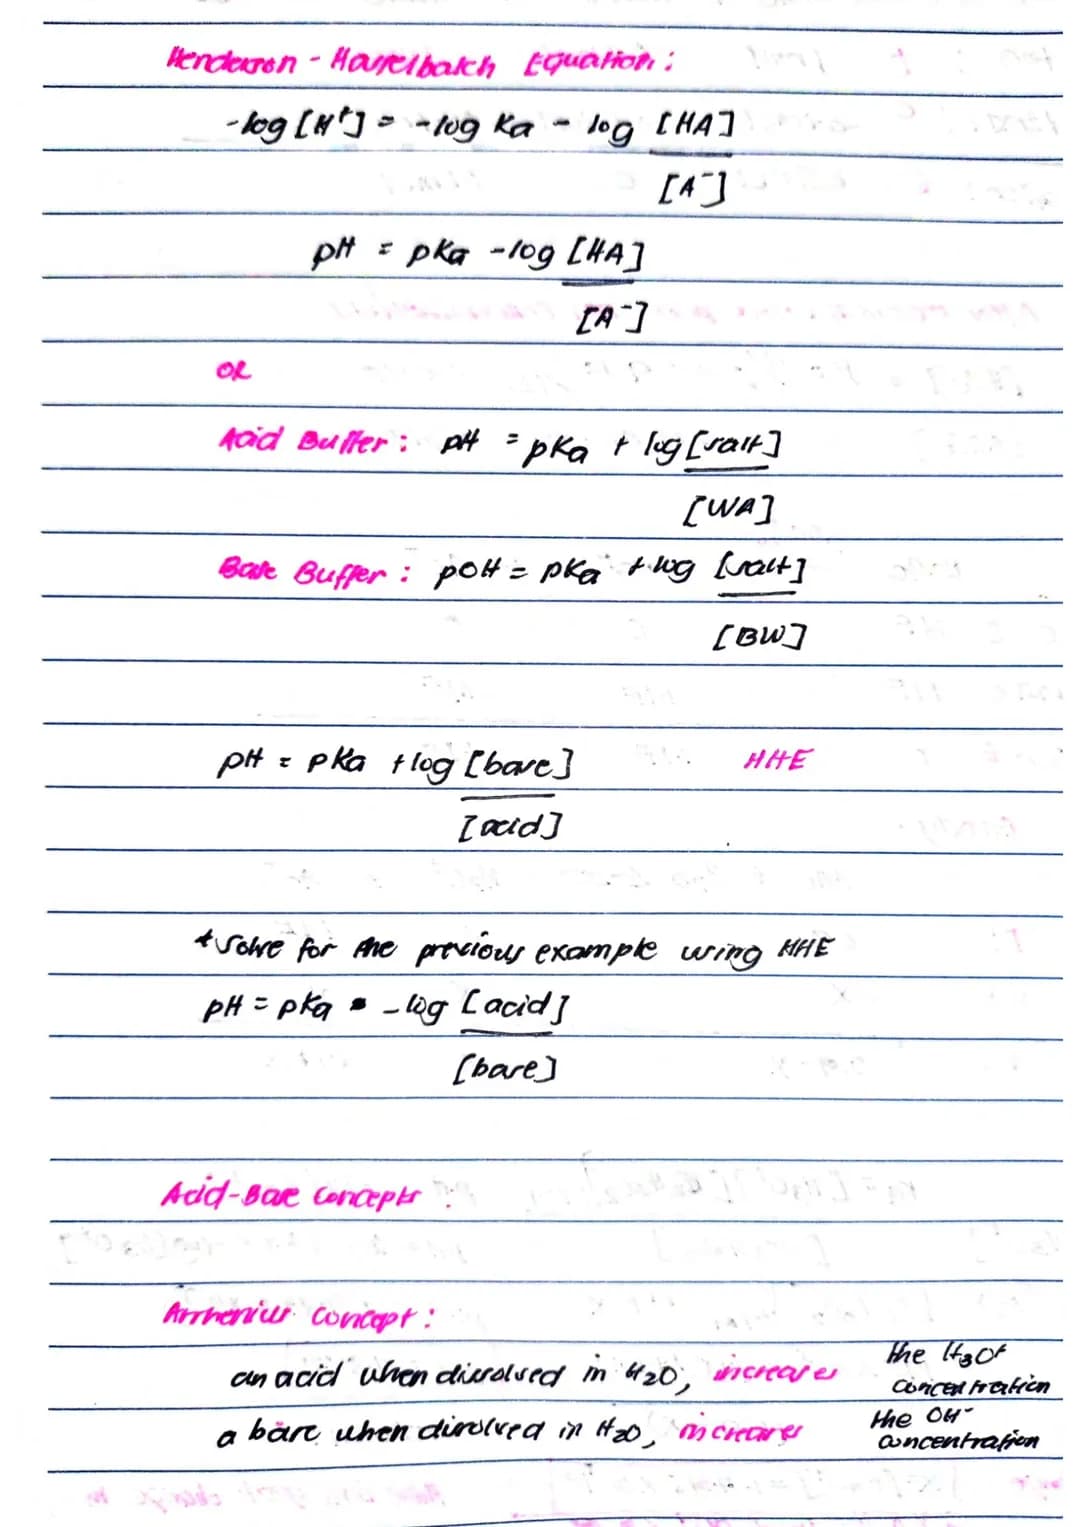 Henderson - Hasselbalch Equation :
-log [H⁺] = -log Ka - log [HA]
[A⁻]
pH = pKa -log [HA]
[A⁻]
OR
Acid Buffer : pH = pKa + log [salt]
[WA]
Base Buffer : pOH = pKa + log [salt]
[BW]
pH = pKa + log [base] HHE
[acid]
* Solve for the previous example using HHE
pH = pKa - log [acid]
[base]
Acid-Base Concepts :
Arrhenius Concept :
an acid when dissolved in H2O, increases the H3O+ concentration
a base when dissolved in H2O, increases the OH- concentration